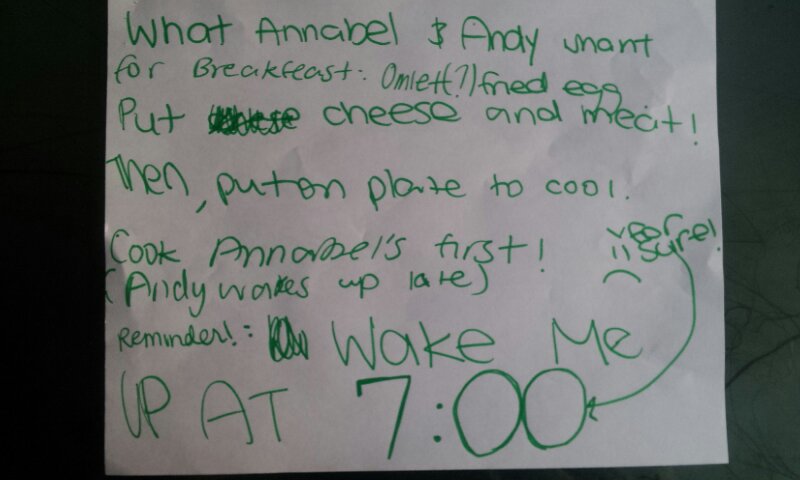 What Annabel & Andy want
for Breakfeast: Omlett(?)fried egg
Put cheese and meat!
Then, put on plate to cool.
Cook Annabel's first!
(Andy wakes up late)
sure!
Reminder!: Wake Me
UP AT 7:00